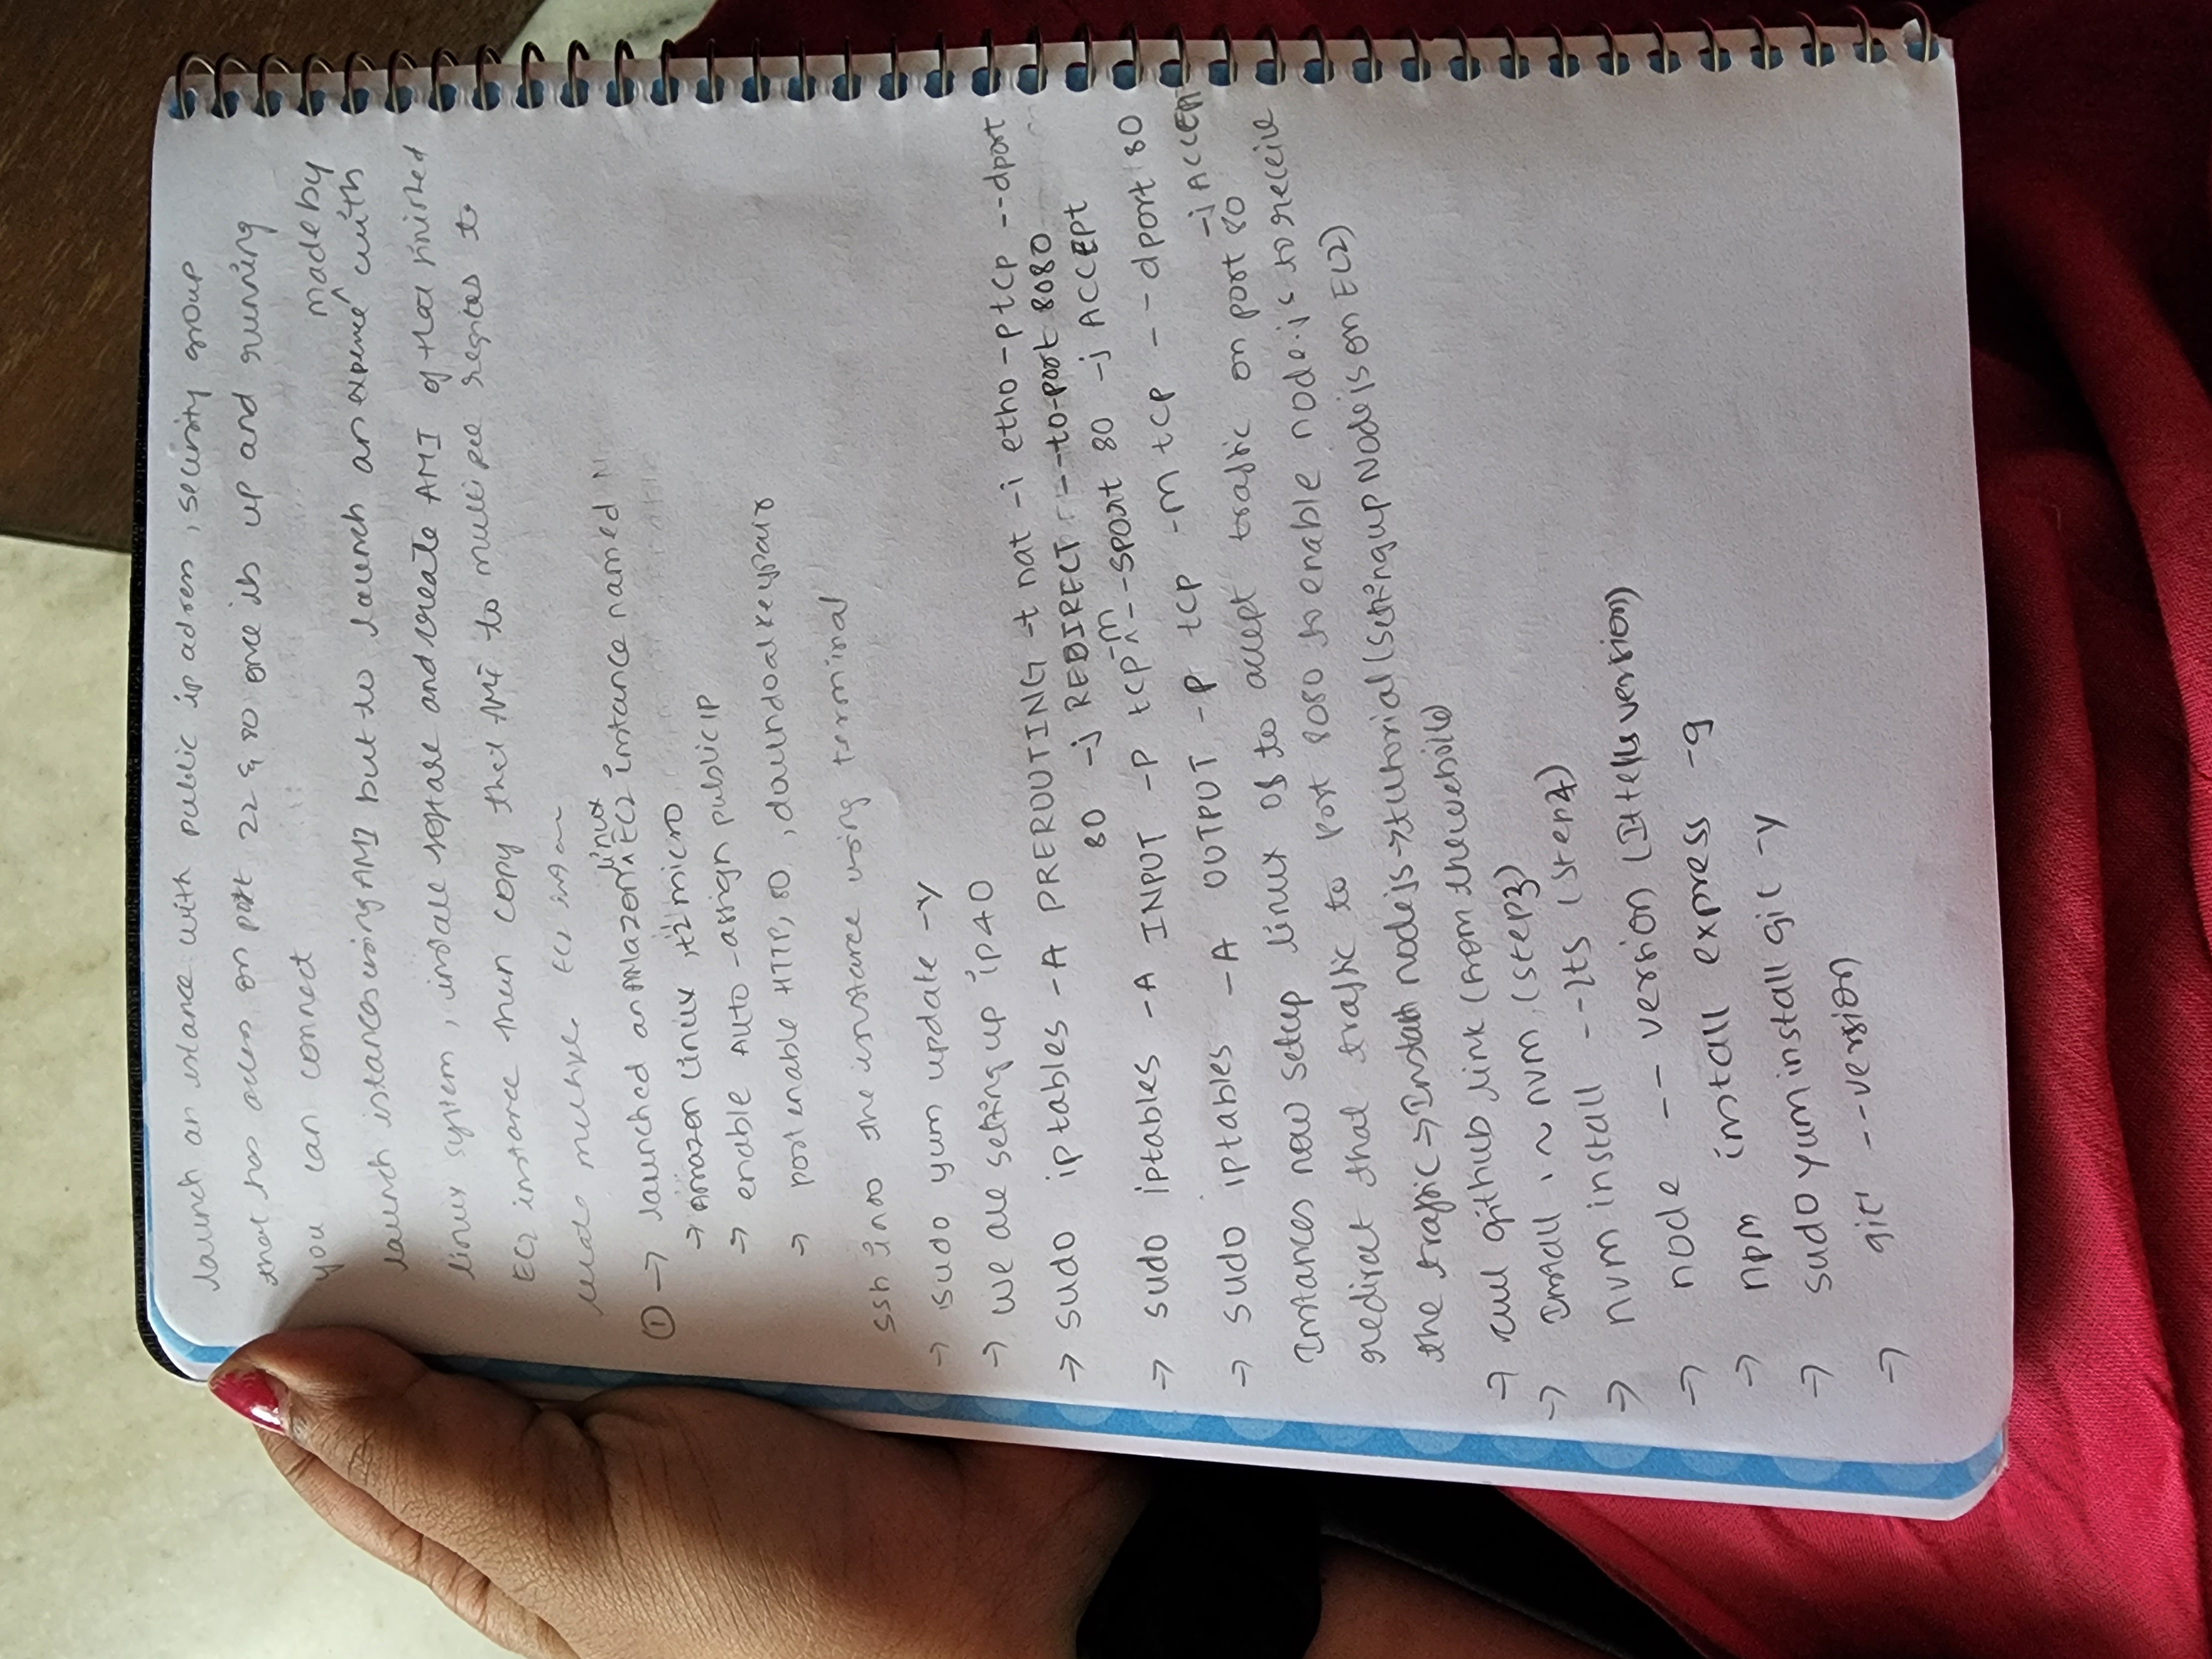 launch an istance with public ip adress , security group
that has access on port 22 & 80 once its up and running
you can connect
made by
launch istances using AMI but to launch an expence ^ with
linux system , install software and create AMI of that finished
EC2 instance then copy that AMI to multiple regions to
create multiple EC2
linux
① → launched an Amazon ^ EC2 instance named N
→ Amazon Linux , t2 micro
→ enable Auto - assign public IP
→ port enable HTTP, 80 , keypair
ssh into the instance using terminal
→ sudo yum update -y
→ we are setting up
→ sudo iptables -A PREROUTING -t nat -i etho -p tcp --dport
80 -j REDIRECT --to-port 8080
-m
→ sudo iptables -A INPUT -p tcp ^ --sport 80 -j ACCEPT
→ sudo iptables -A OUTPUT -p tcp -m tcp --dport 80
-j ACCEPT
Instances now setup linux os to accept traffic on port 80
redirect that traffic to port 8080 to enable node.js to receive
the traffic → Install nodejs → tutorial (Setting up Node js on EC2)
→ curl github link (from the website)
→ Install . ~ nvm (step3)
→ nvm install --lts (step4)
→ node -- version (It tells version)
→ npm install express -g
→ sudo yum install git -y
→ git --version